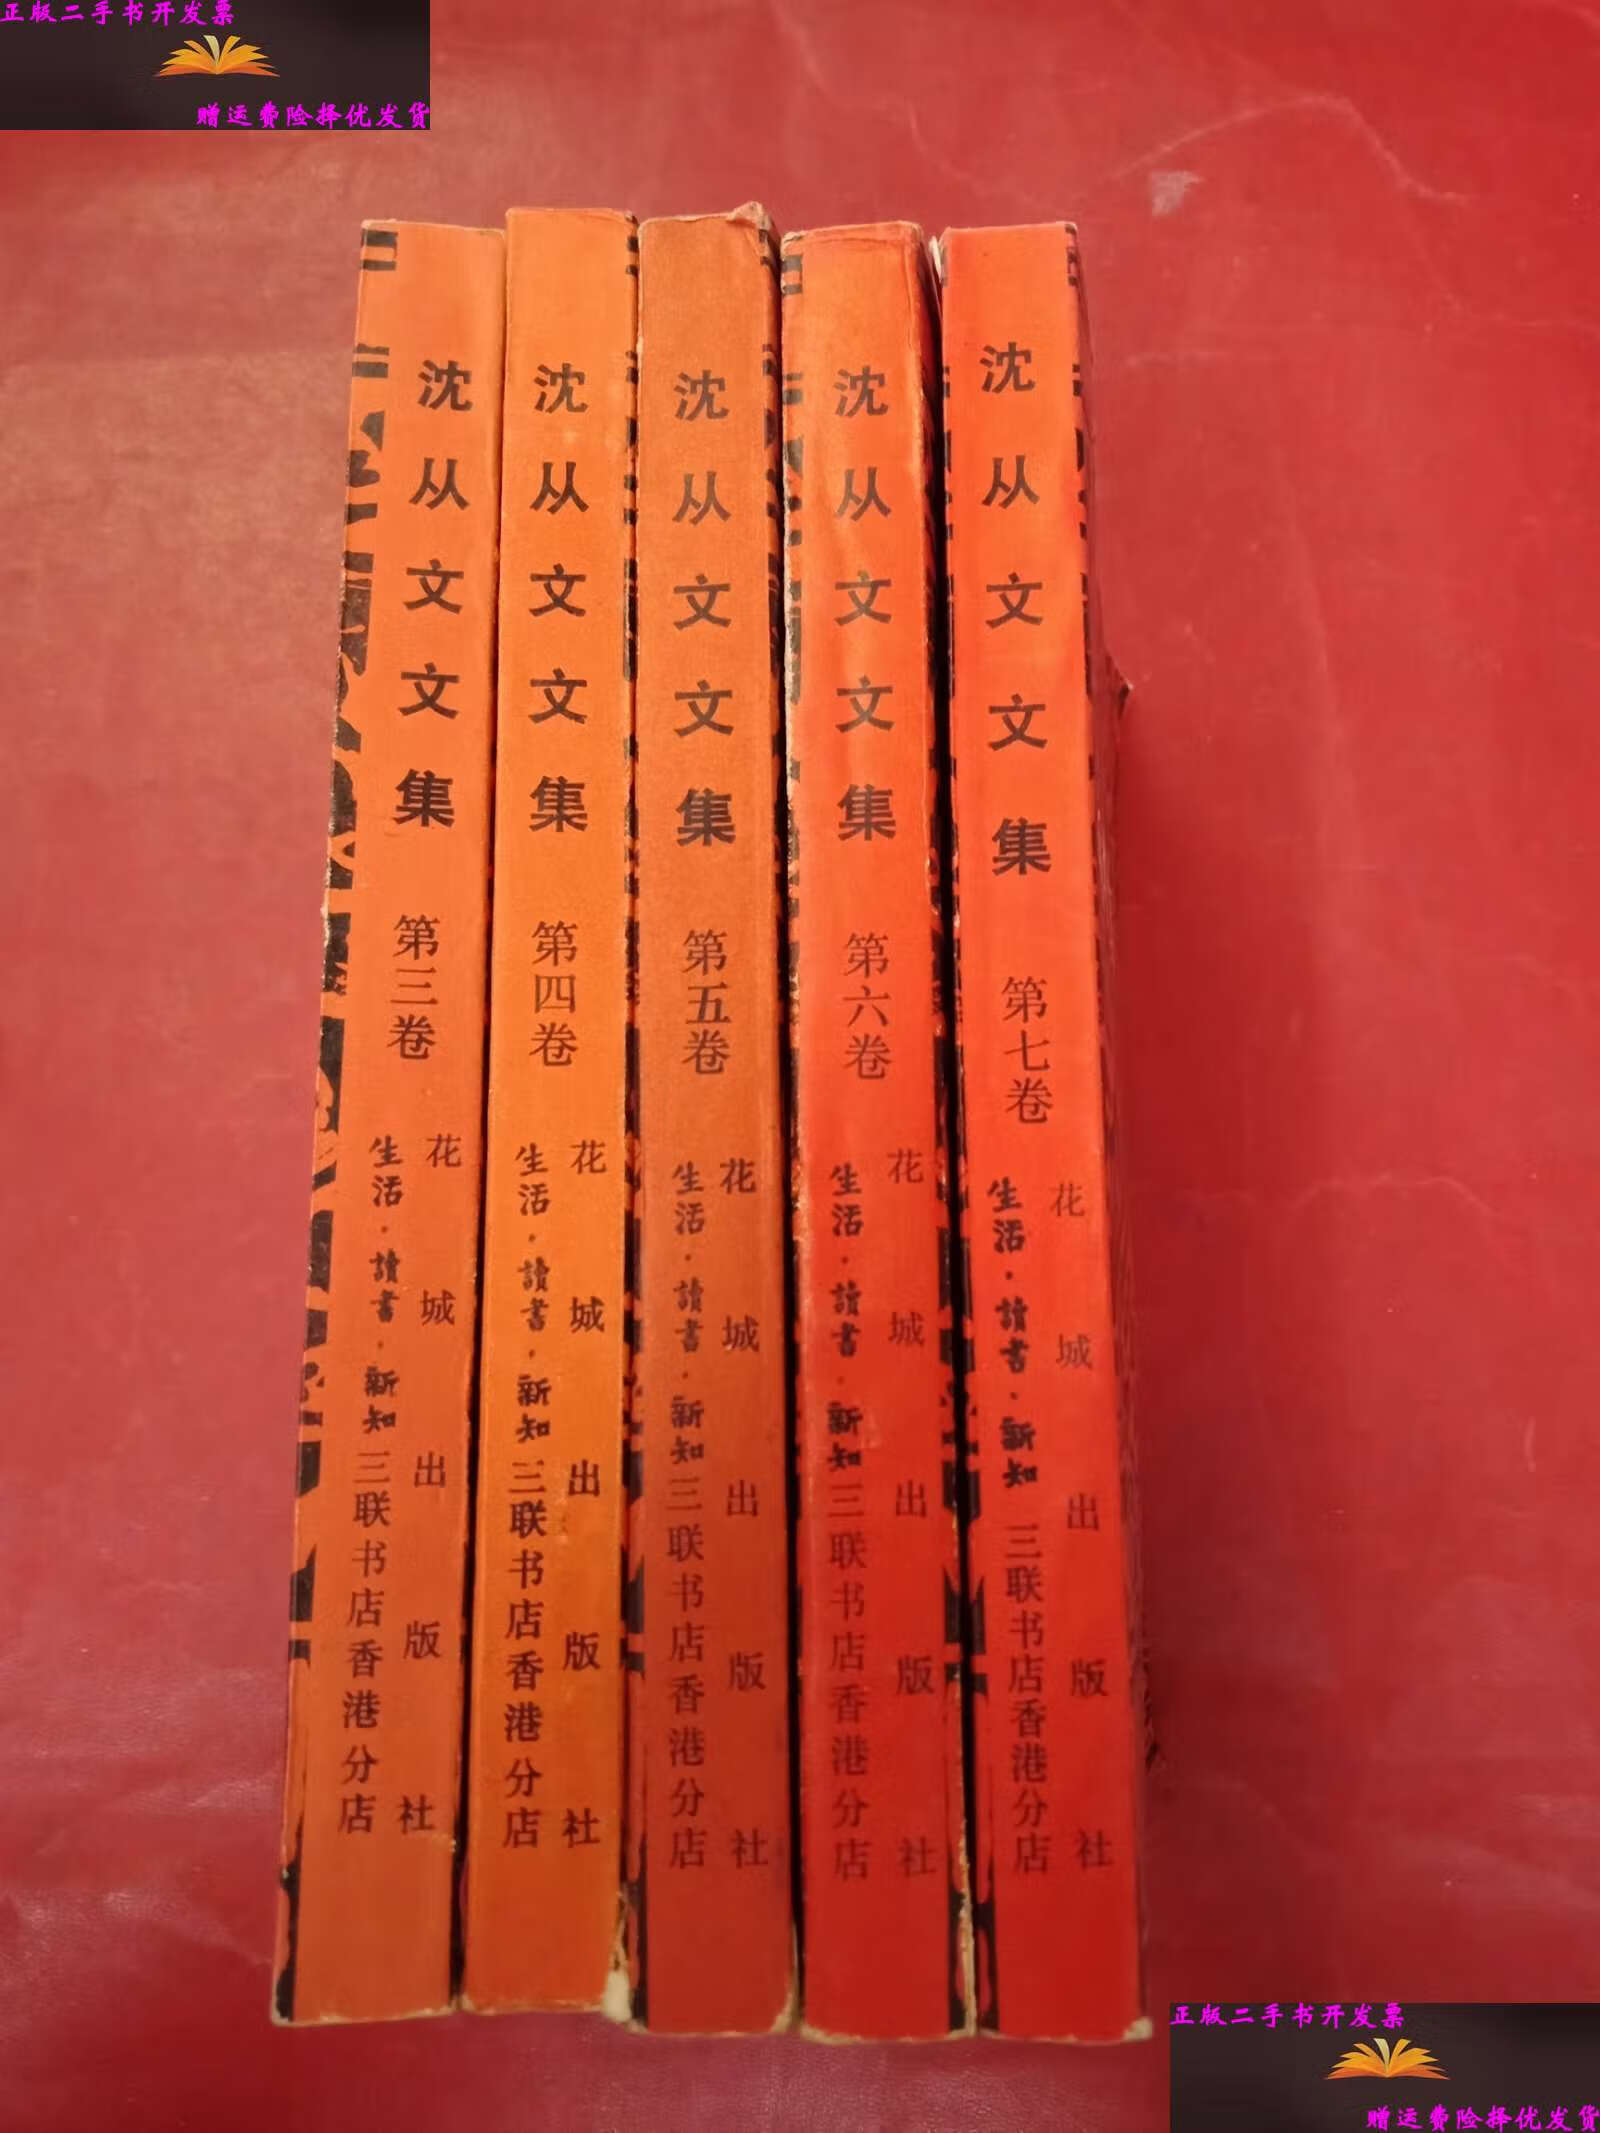 正版二手书开发票
赠运费险择优发货
沈从文文集 第三卷
花城出版社
生活·讀書·新知三联书店香港分店
沈从文文集 第四卷
花城出版社
生活·讀書·新知三联书店香港分店
沈从文文集 第五卷
花城出版社
生活·讀書·新知三联书店香港分店
沈从文文集 第六卷
花城出版社
生活·讀書·新知三联书店香港分店
沈从文文集 第七卷
花城出版社
生活·讀書·新知三联书店香港分店
正版二手书开发票
赠运费险择优发货